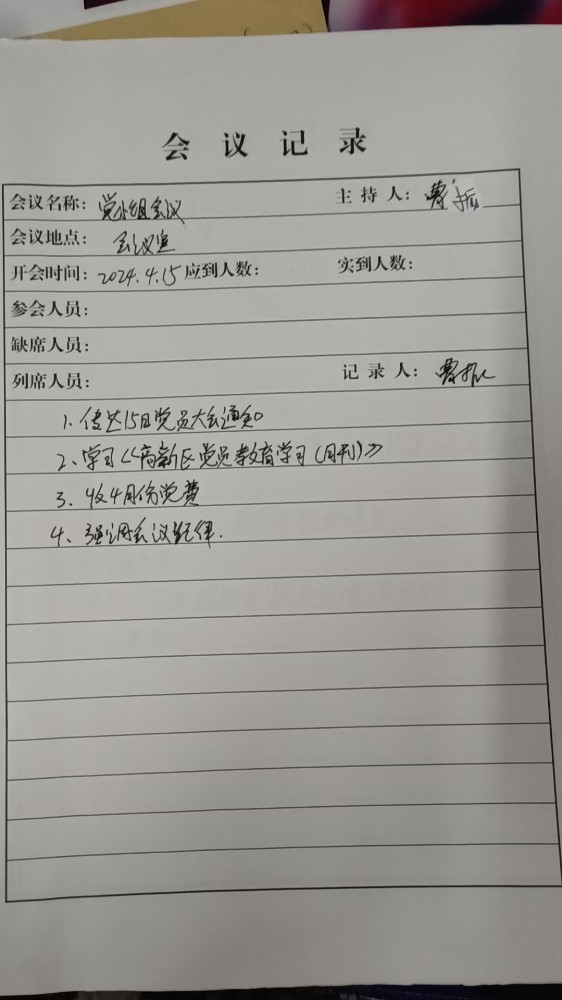 会议记录
会议名称：党小组会议 主持人：曹振
会议地点：会议室
开会时间：2024.4.15 应到人数： 实到人数：
参会人员：
缺席人员：
列席人员： 记录人：曹振
1、传达15日党员大会通知
2、学习《高新区党员教育学习（月刊）》
3、收4月份党费
4、强调会议纪律.